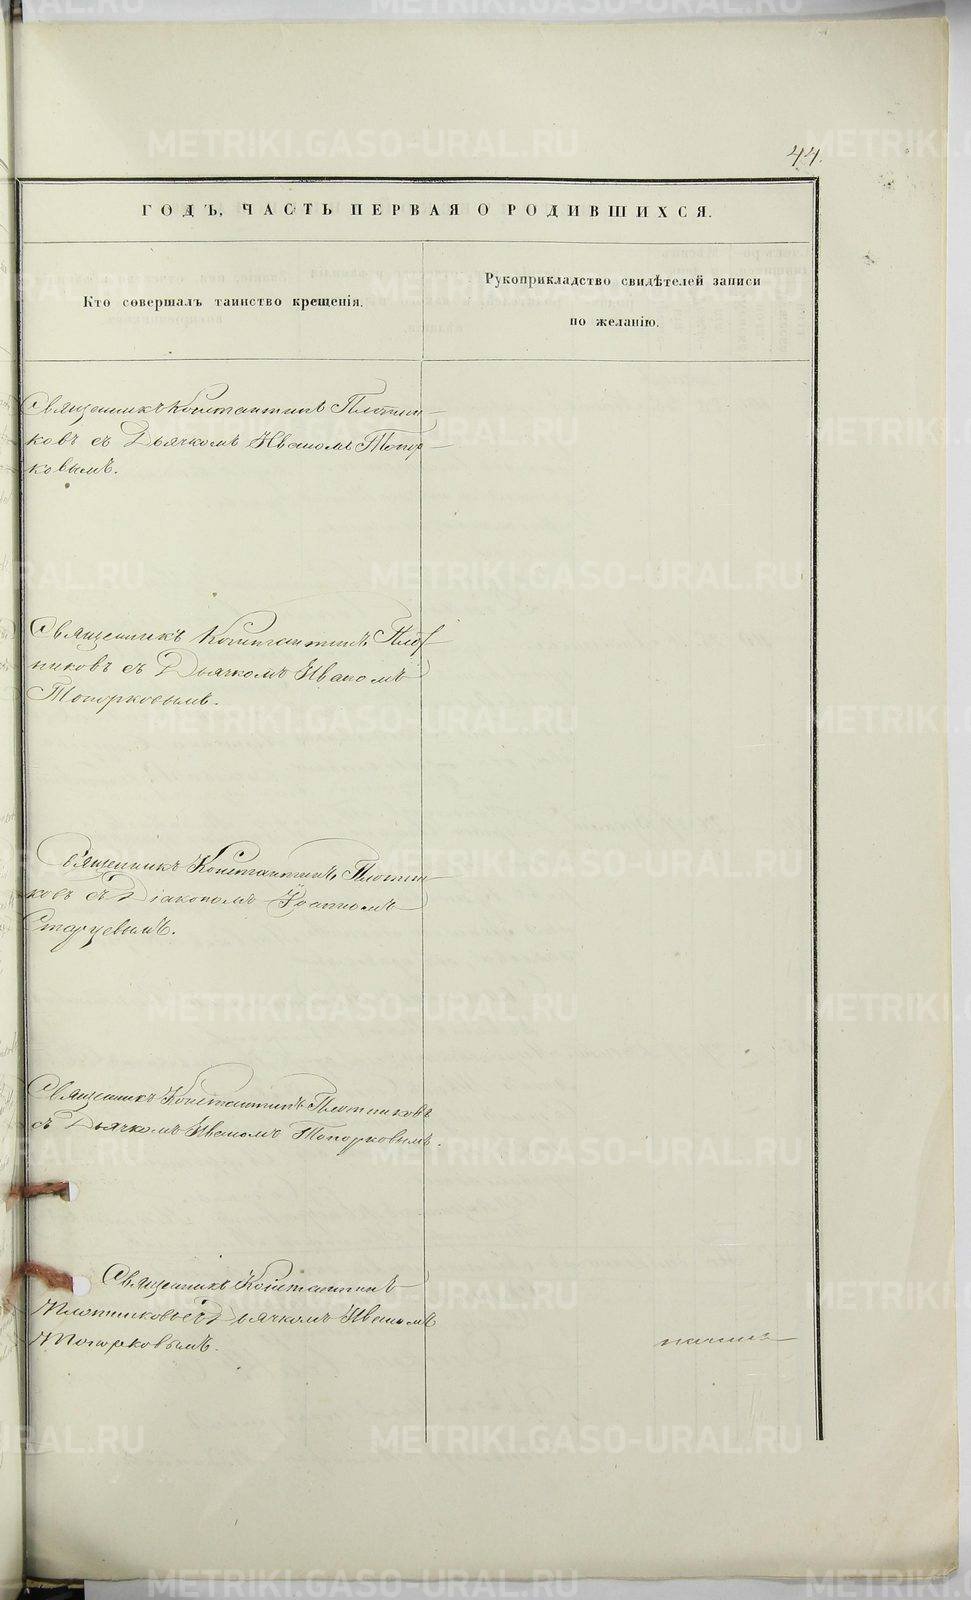 44.
ГОДЪ, ЧАСТЬ ПЕРВАЯ О РОДИВШИХСЯ.
Кто совершалъ таинство крещенія.
Рукоприкладство свидѣтелей записи
по желанію.
Священникъ Константинъ Плотни-
ковъ съ Дьячкомъ Иваномъ Топор-
ковымъ.
Священникъ Константинъ Плот
никовъ съ Дьячкомъ Иваномъ
Топорковымъ.
Священникъ Константинъ Плотни
ковъ съ Діакономъ Іоанномъ
Старцевымъ.
Священникъ Константинъ Плотниковъ
съ Дьячкомъ Иваномъ Топорковымъ.
Священникъ Константинъ
Плотниковъ съ Дьячкомъ Иваномъ
Топорковымъ.
METRIKI.GASO-URAL.RU